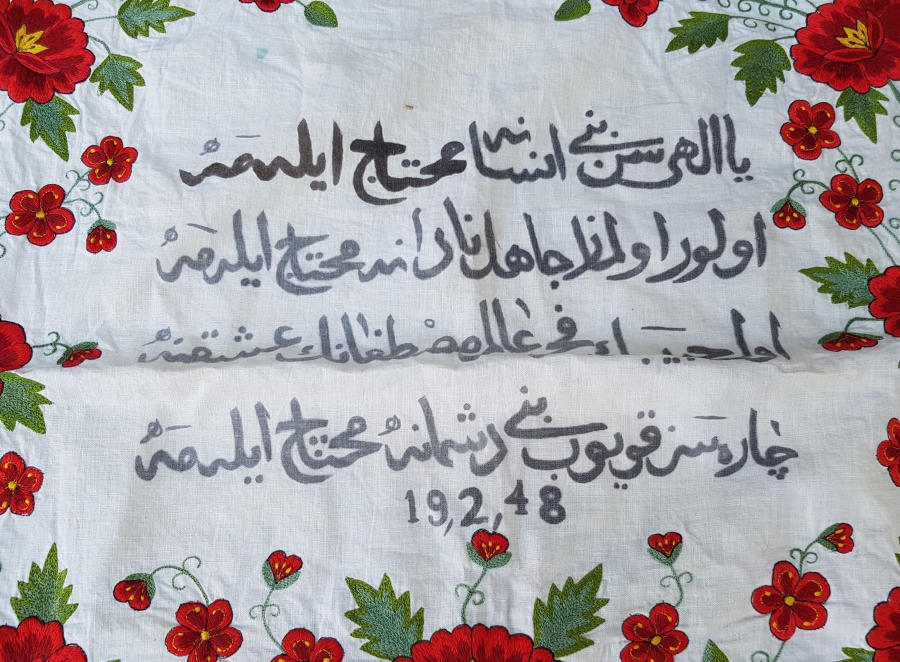 يا الهى سن بنى انسانه محتاج ايلەمه
اولور اولماز جاهل نادانه محتاج ايلەمه
اول عالم مصطفانك عشقنه
چاره سز قويوب بنى دشمانه محتاج ايلەمه
19,2,48